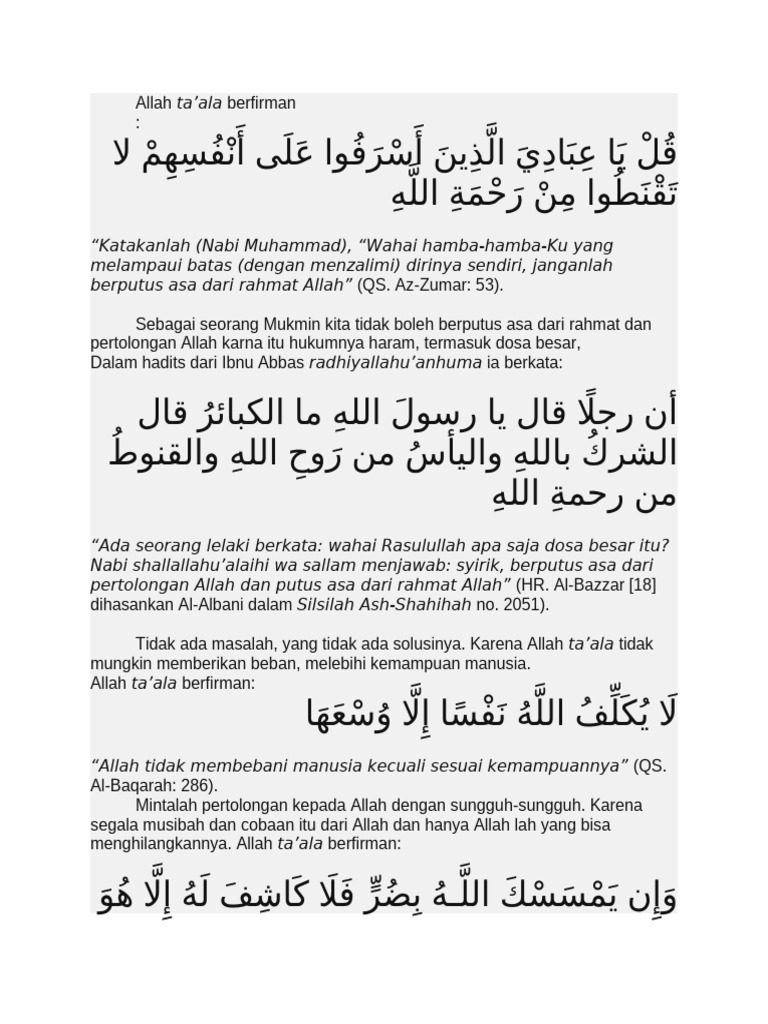 Allah ta’ala berfirman
:
قُلْ يَا عِبَادِيَ الَّذِينَ أَسْرَفُوا عَلَى أَنْفُسِهِمْ لا
تَقْنَطُوا مِنْ رَحْمَةِ اللَّهِ
“Katakanlah (Nabi Muhammad), “Wahai hamba-hamba-Ku yang
melampaui batas (dengan menzalimi) dirinya sendiri, janganlah
berputus asa dari rahmat Allah” (QS. Az-Zumar: 53).
Sebagai seorang Mukmin kita tidak boleh berputus asa dari rahmat dan
pertolongan Allah karna itu hukumnya haram, termasuk dosa besar,
Dalam hadits dari Ibnu Abbas radhiyallahu’anhuma ia berkata:
أن رجلًا قال يا رسولَ اللهِ ما الكبائرُ قال
الشركُ باللهِ واليأسُ من رَوحِ اللهِ والقنوطُ
من رحمةِ اللهِ
“Ada seorang lelaki berkata: wahai Rasulullah apa saja dosa besar itu?
Nabi shallallahu’alaihi wa sallam menjawab: syirik, berputus asa dari
pertolongan Allah dan putus asa dari rahmat Allah” (HR. Al-Bazzar [18]
dihasankan Al-Albani dalam Silsilah Ash-Shahihah no. 2051).
Tidak ada masalah, yang tidak ada solusinya. Karena Allah ta’ala tidak
mungkin memberikan beban, melebihi kemampuan manusia.
Allah ta’ala berfirman:
لَا يُكَلِّفُ اللَّهُ نَفْسًا إِلَّا وُسْعَهَا
“Allah tidak membebani manusia kecuali sesuai kemampuannya” (QS.
Al-Baqarah: 286).
Mintalah pertolongan kepada Allah dengan sungguh-sungguh. Karena
segala musibah dan cobaan itu dari Allah dan hanya Allah lah yang bisa
menghilangkannya. Allah ta’ala berfirman:
وَإِن يَمْسَسْكَ اللَّـهُ بِضُرٍّ فَلَا كَاشِفَ لَهُ إِلَّا هُوَ